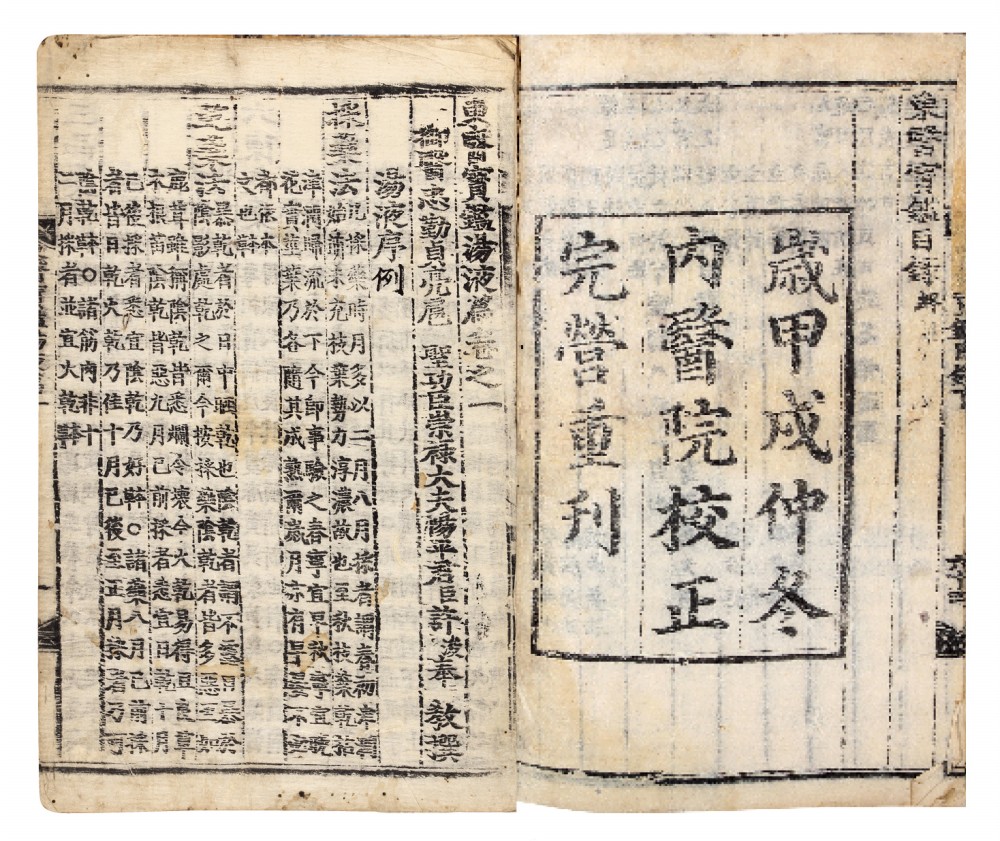 東醫寶鑑目錄 終
歲甲戌仲冬
內醫院校正
完營重刊
東醫寶鑑湯液篇卷之一
御醫忠勤貞亮扈 聖功臣崇祿大夫陽平君臣許浚奉 教撰
湯液序例
採藥法 凡採藥時月多以二月八月採者謂春初津潤
始萌未充枝葉勢力淳濃故也至秋枝葉乾枯
津潤歸流於下今即事驗之春寧宜早秋寧宜晚
花實莖葉乃各隨其成熟爾歲月亦有早晏不必
都依本
文也
乾藥法 暴乾者於日中晒乾也陰乾者謂不露日暴於
陰影處乾之爾今按採藥陰乾者皆多惡至如
鹿茸雖稱陰乾皆悉爛令壞今火乾易得且良草
木根苗陰乾皆惡九月已前採者悉宜日乾十月
已後採者悉宜陰乾乃好 ○諸藥八月已前採
者皆日乾火乾乃佳十月已後至正月採者乃可
陰乾 ○諸筋肉非十
二月採者並宜火乾